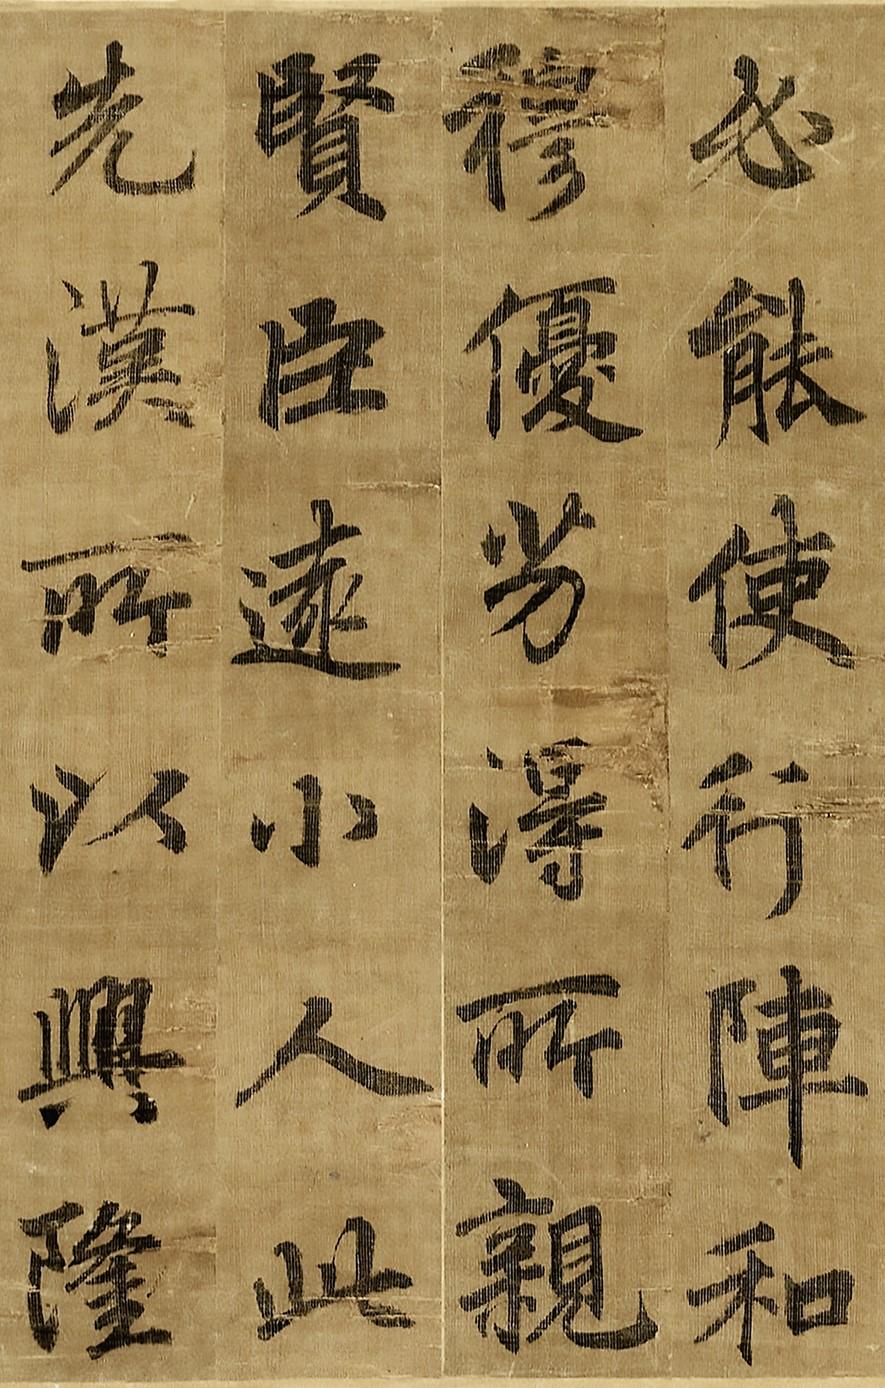 必能使行陣和
穆優劣得所親
賢臣遠小人此
先漢所以興隆